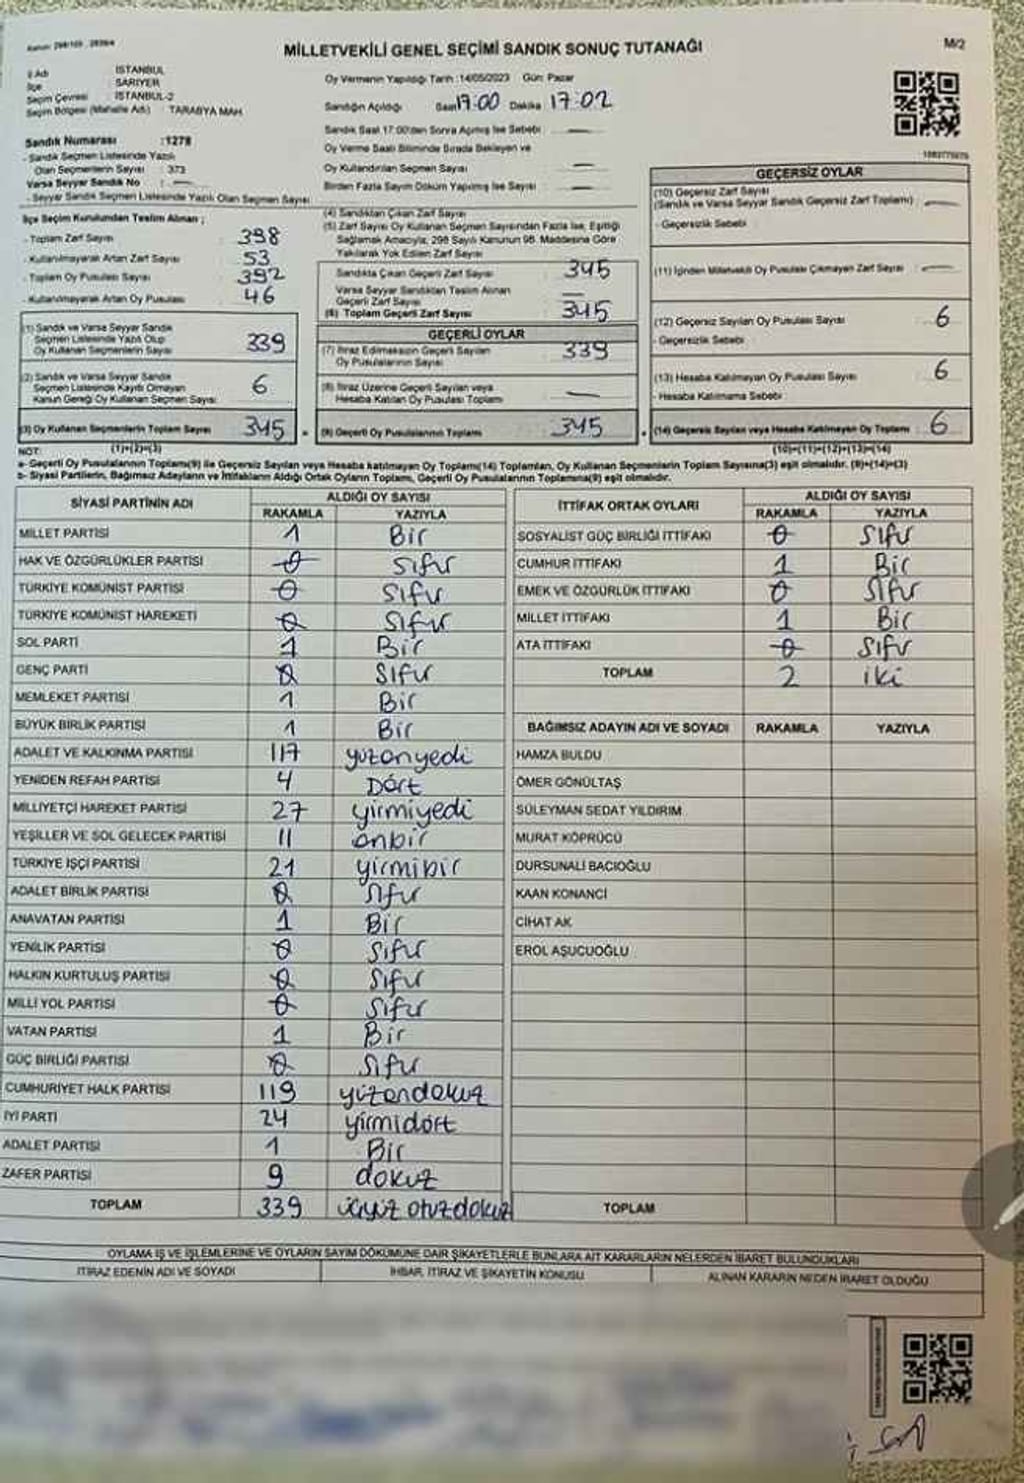 Kanun: 298/105 , 2839/4
MİLLETVEKİLİ GENEL SEÇİMİ SANDIK SONUÇ TUTANAĞI
M/2
İl Adı İSTANBUL
İlçe SARIYER
Seçim Çevresi İSTANBUL-2
Seçim Bölgesi (Mahalle Adı) : TARABYA MAH
Oy Vermenin Yapıldığı Tarih :14/05/2023 Gün: Pazar
Sandığın Açıldığı Saat 17:00 Dakika 17:02
Sandık Saat 17:00'den Sonra Açılmış İse Sebebi : —
Oy Verme Saati Bitiminde Sırada Bekleyen ve
Oy Kullandırılan Seçmen Sayısı —
Birden Fazla Sayım Döküm Yapılmış İse Sayısı —
Sandık Numarası :1278
- Sandık Seçmen Listesinde Yazılı
Olan Seçmenlerin Sayısı : 373
Varsa Seyyar Sandık No : —
- Seyyar Sandık Seçmen Listesinde Yazılı Olan Seçmen Sayısı
İlçe Seçim Kurulundan Teslim Alınan ;
- Toplam Zarf Sayısı 398
- Kullanılmayarak Artan Zarf Sayısı 53
- Toplam Oy Pusulası Sayısı 392
- Kullanılmayarak Artan Oy Pusulası 46
(1) Sandık ve Varsa Seyyar Sandık
Seçmen Listesinde Yazılı Olup
Oy Kullanan Seçmenlerin Sayısı 339
(2) Sandık ve Varsa Seyyar Sandık
Seçmen Listesinde Kayıtlı Olmayan
Kanun Gereği Oy Kullanan Seçmen Sayısı 6
(3) Oy Kullanan Seçmenlerin Toplam Sayısı 345
(1)+(2)=(3)
(4) Sandıktan Çıkan Zarf Sayısı
(5) Zarf Sayısı Oy Kullanan Seçmen Sayısından Fazla İse, Eşitliği
Sağlamak Amacıyla, 298 Sayılı Kanunun 98. Maddesine Göre
Yakılarak Yok Edilen Zarf Sayısı
Sandıkta Çıkan Geçerli Zarf Sayısı 345
Varsa Seyyar Sandıktan Teslim Alınan
Geçerli Zarf Sayısı —
(6) Toplam Geçerli Zarf Sayısı 345
GEÇERLİ OYLAR
(7) İtiraz Edilmeksizin Geçerli Sayılan
Oy Pusulalarının Sayısı 339
(8) İtiraz Üzerine Geçerli Sayılan veya
Hesaba Katılan Oy Pusulası Toplamı —
(9) Geçerli Oy Pusulalarının Toplamı 345
GEÇERSİZ OYLAR
(10) Geçersiz Zarf Sayısı
(Sandık ve Varsa Seyyar Sandık Geçersiz Zarf Toplamı) —
- Geçersizlik Sebebi
(11) İçinden Milletvekili Oy Pusulası Çıkmayan Zarf Sayısı —
(12) Geçersiz Sayılan Oy Pusulası Sayısı 6
- Geçersizlik Sebebi
(13) Hesaba Katılmayan Oy Pusulası Sayısı 6
- Hesaba Katılmama Sebebi
(14) Geçersiz Sayılan veya Hesaba Katılmayan Oy Toplamı 6
(10)+(11)+(12)+(13)=(14)
NOT:
a- Geçerli Oy Pusulalarının Toplamı(9) ile Geçersiz Sayılan veya Hesaba katılmayan Oy Toplamı(14) Toplamları, Oy Kullanan Seçmenlerin Toplam Sayısına(3) eşit olmalıdır. (9)+(14)=(3)
b- Siyasi Partilerin, Bağımsız Adayların ve İttifakların Aldığı Ortak Oyların Toplamı, Geçerli Oy Pusulalarının Toplamına(9) eşit olmalıdır.
SİYASİ PARTİNİN ADI ALDIĞI OY SAYISI
RAKAMLA YAZIYLA
MİLLET PARTİSİ 1 Bir
HAK VE ÖZGÜRLÜKLER PARTİSİ 0 Sıfır
TÜRKİYE KOMÜNİST PARTİSİ 0 Sıfır
TÜRKİYE KOMÜNİST HAREKETİ 0 Sıfır
SOL PARTİ 1 Bir
GENÇ PARTİ 0 Sıfır
MEMLEKET PARTİSİ 1 Bir
BÜYÜK BİRLİK PARTİSİ 1 Bir
ADALET VE KALKINMA PARTİSİ 117 yüzonyedi
YENİDEN REFAH PARTİSİ 4 Dört
MİLLİYETÇİ HAREKET PARTİSİ 27 yirmiyedi
YEŞİLLER VE SOL GELECEK PARTİSİ 11 onbir
TÜRKİYE İŞÇİ PARTİSİ 21 yirmibir
ADALET BİRLİK PARTİSİ 0 Sıfır
ANAVATAN PARTİSİ 1 Bir
YENİLİK PARTİSİ 0 Sıfır
HALKIN KURTULUŞ PARTİSİ 0 Sıfır
MİLLİ YOL PARTİSİ 0 Sıfır
VATAN PARTİSİ 1 Bir
GÜÇ BİRLİĞİ PARTİSİ 0 Sıfır
CUMHURİYET HALK PARTİSİ 119 yüzondokuz
İYİ PARTİ 24 yirmidört
ADALET PARTİSİ 1 Bir
ZAFER PARTİSİ 9 dokuz
TOPLAM 339 üçyüz otuzdokuz
İTTİFAK ORTAK OYLARI ALDIĞI OY SAYISI
RAKAMLA YAZIYLA
SOSYALİST GÜÇ BİRLİĞİ İTTİFAKI 0 Sıfır
CUMHUR İTTİFAKI 1 Bir
EMEK VE ÖZGÜRLÜK İTTİFAKI 0 Sıfır
MİLLET İTTİFAKI 1 Bir
ATA İTTİFAKI 0 Sıfır
TOPLAM 2 iki
BAĞIMSIZ ADAYIN ADI VE SOYADI RAKAMLA YAZIYLA
HAMZA BULDU
ÖMER GÖNÜLTAŞ
SÜLEYMAN SEDAT YILDIRIM
MURAT KÖPRÜCÜ
DURSUNALİ BACIOĞLU
KAAN KONANCİ
CİHAT AK
EROL AŞUCUOĞLU
TOPLAM
OYLAMA İŞ VE İŞLEMLERİNE VE OYLARIN SAYIM DÖKÜMÜNE DAİR ŞİKAYETLERLE BUNLARA AİT KARARLARIN NELERDEN İBARET BULUNDUKLARI
İTİRAZ EDENİN ADI VE SOYADI İHBAR, İTİRAZ VE ŞİKAYETİN KONUSU ALINAN KARARIN NEDEN İBARET OLDUĞU